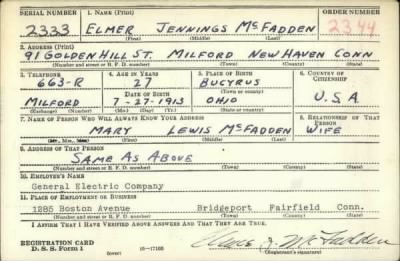 SERIAL NUMBER 1. NAME (Print) ORDER NUMBER
2333 ELMER JENNINGS McFADDEN 2344
(First) (Middle) (Last)
2. ADDRESS (Print)
91 GOLDEN HILL ST. MILFORD NEW HAVEN CONN
(Number and street or R. F. D. number) (Town) (County) (State)
3. TELEPHONE 4. AGE IN YEARS 5. PLACE OF BIRTH 6. COUNTRY OF CITIZENSHIP
663-R 27 BUCYRUS
DATE OF BIRTH (Town or county)
MILFORD 7-27-1913 OHIO U.S.A
(Exchange) (Number) (Mo.) (Day) (Yr.) (State or country)
7. NAME OF PERSON WHO WILL ALWAYS KNOW YOUR ADDRESS 8. RELATIONSHIP OF THAT PERSON
MARY LEWIS McFADDEN WIFE
(Mr., Mrs., Miss) (First) (Middle) (Last)
9. ADDRESS OF THAT PERSON
SAME AS ABOVE
(Number and street or R. F. D. number) (Town) (County) (State)
10. EMPLOYER'S NAME
General Electric Company
11. PLACE OF EMPLOYMENT OR BUSINESS
1285 Boston Avenue Bridgeport Fairfield Conn.
(Number and street or R. F. D. number) (Town) (County) (State)
I AFFIRM THAT I HAVE VERIFIED ABOVE ANSWERS AND THAT THEY ARE TRUE.
REGISTRATION CARD
D. S. S. Form 1 (over) 16—17105 Elmer J. McFadden
(Registrant's signature)